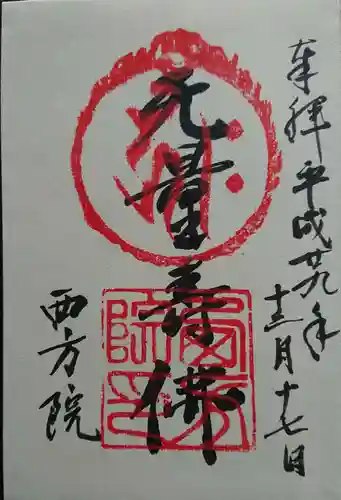 奉拝 平成廿九年
十二月十七日
无量寿佛
西方院
西方院印